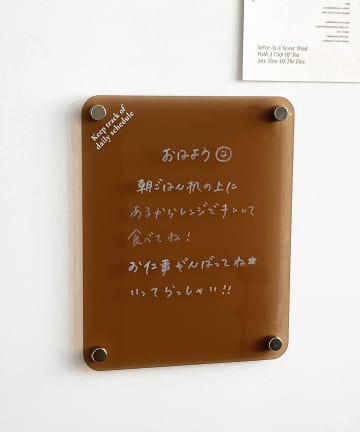 Serve As A Sweet Treat
With A Cup Of Tea
Any Time Of The Day
Keep track of
daily schedule
おはよう☺
朝ごはん机の上に
あるからレンジでチンして
食べてね!
お仕事がんばってね★
いってらっしゃい!!